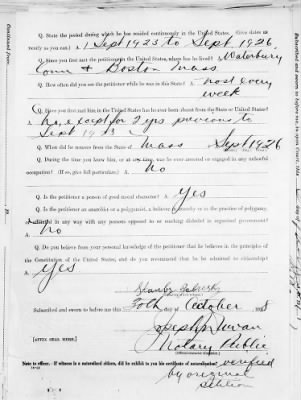 Q. State the period during which he has resided continuously in the United States. (Give dates as
nearly as you can.) A. Sept 1923 to Sept 1926
Q. Since you first met the petitioner in the United States, where has he lived? A. Waterbury
Conn & Boston Mass
Q. How often did you see the petitioner while he was in this State? A. most every
week
Q. Since you first met him in the United States has he ever been absent from the State or United States?
A. No, except for 2 yrs previous to
Sept 1923
Q. When did he remove from the State of Mass Sept 1926
Q. During the time you knew him, or at any time, was he ever arrested or engaged in any unlawful
occupation? (If so, give full particulars.) A. No
Q. Is the petitioner a person of good moral character? A. Yes
Q. Is the petitioner an anarchist or a polygamist, a believer in anarchy or in the practice of polygamy,
affiliated in any way with any persons opposed to or teaching disbelief in organized government?
A. No
Q. Do you believe from your personal knowledge of the petitioner that he believes in the principles
of the Constitution of the United States, and do you recommend that he be admitted to citizenship?
A. Yes
Stanley
Subscribed and sworn to before me this 30th day of October
Joseph
Notary Public
[AFFIX SEAL HERE.]
Note to officer.—If witness is a naturalized citizen, did he exhibit to you his certificate of naturalization? verified
by original
petition